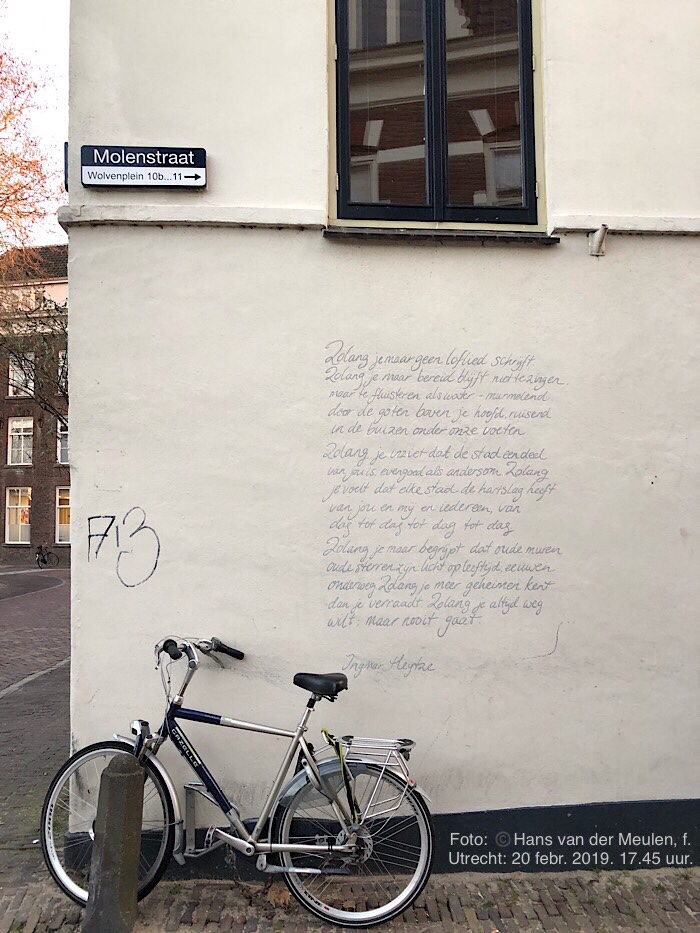 Molenstraat
Wolvenplein 10b...11
Zolang je maar geen loflied schrijft
Zolang je maar bereid blijft niet te zingen
maar te fluisteren als water - murmelend
door de goten boven je hoofd, ruisend
in de buizen onder onze voeten
Zolang je inziet dat de stad een deel
van jou is, evengoed als andersom Zolang
je voelt dat elke stad de hartslag heeft
van jou en mij en iedereen, van
dag tot dag tot dag tot dag
Zolang je maar begrijpt dat oude muren
oude sterren zijn licht op leeftijd, eeuwen
onderweg Zolang je meer geheimen kent
dan je verraadt. Zolang je altijd weg
wilt, maar nooit gaat.
Ingmar Heytze
GAZELLE
Foto: © Hans van der Meulen, f.
Utrecht: 20 febr. 2019. 17.45 uur.